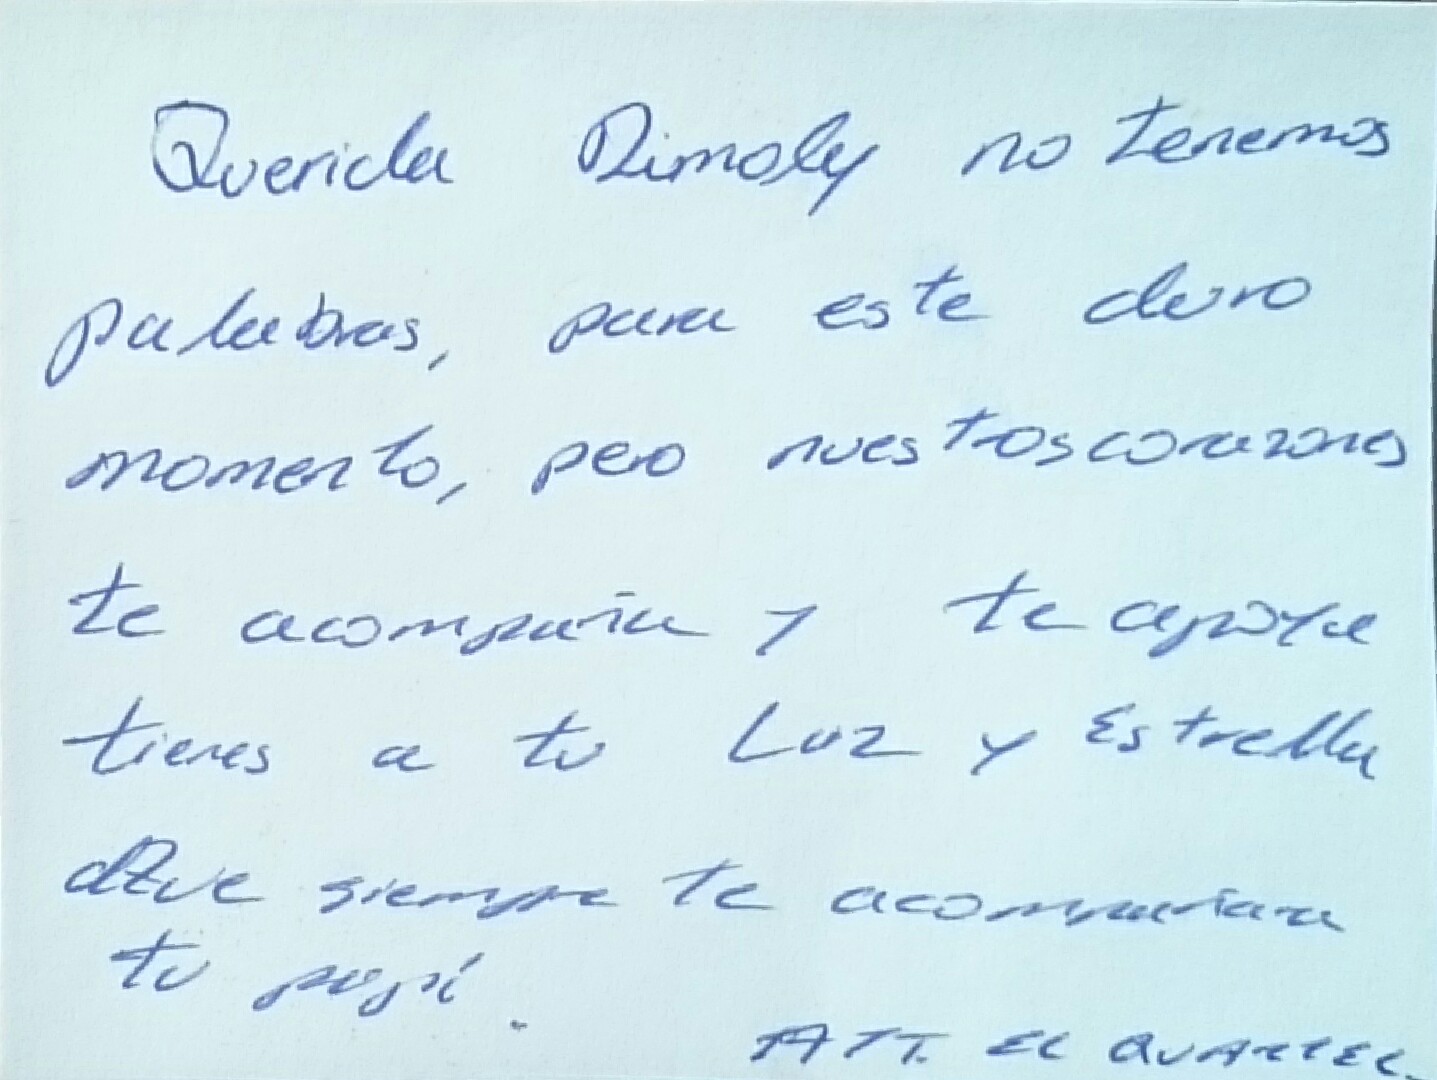 Querida Rimoly no tenemos
palabras, para este duro
momento, pero nuestros corazones
te acompaña y te apoya
tienes a tu Luz y Estrella
que siempre te acompañara
tu papí.
ATT. EL QUARTEL.